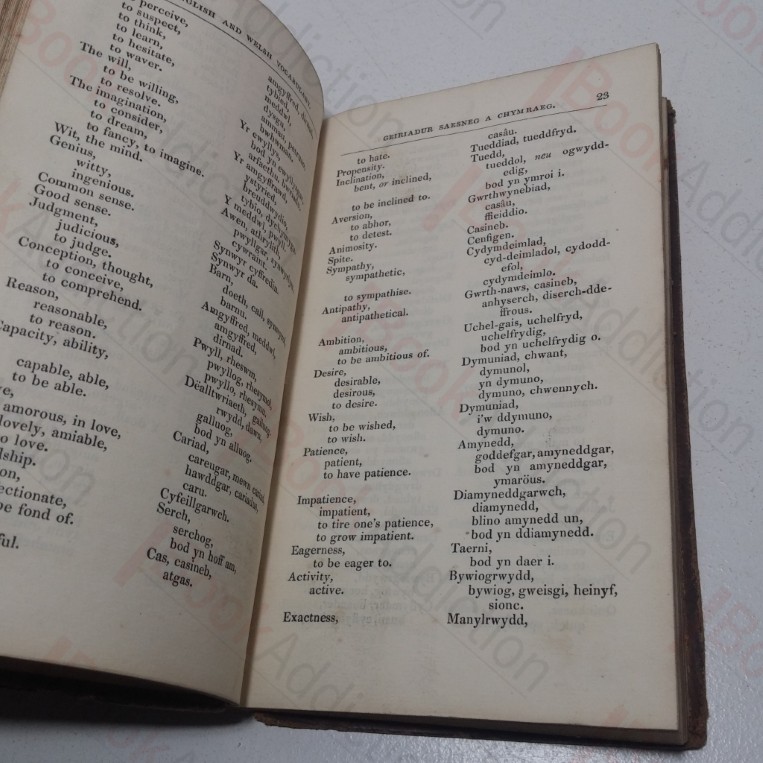 ENGLISH AND WELSH VOCABULARY.
to perceive,
to suspect,
to think,
to learn,
to hesitate,
to waver.
The will,
to be willing,
to resolve.
The imagination,
to consider,
to dream,
to fancy, to imagine.
Wit, the mind.
Genius,
witty,
ingenious.
Common sense.
Good sense.
Judgment,
judicious,
to judge.
Conception, thought,
to conceive,
to comprehend.
Reason,
reasonable,
to reason.
Capacity, ability,
capable, able,
to be able.
amorous, in love,
lovely, amiable,
to love.
be fond of.
amgyffred,
tybied,
meddwl,
dysgu,
Yr ewyllys,
Synwyr cyffredin.
Synwyr da.
Barn,
doeth, call,
barnu.
Amgyffred, meddwl,
amgyffred,
dirnad.
Pwyll, rheswm,
pwyllog, rhesymol,
pwyllo, rhesymu.
Dëalltwriaeth, gallu,
galluog,
bod yn alluog.
Cariad,
careugar, mewn cariad,
hawddgar, cariadus,
caru.
Cyfeillgarwch.
Serch,
serchog,
bod yn hoff am,
Cas, casineb,
atgas.
GEIRIADUR SAESNEG A CHYMRAEG. 23
to hate. casâu.
Propensity. Tueddiad, tueddfryd.
Inclination, Tuedd,
bent, or inclined, tueddol, neu ogwydd-
edig,
to be inclined to. bod yn ymroi i.
Aversion, Gwrthwynebiad,
to abhor, casâu,
to detest. ffieiddio.
Animosity. Casineb.
Spite. Cenfigen.
Sympathy, Cydymdeimlad,
sympathetic, cyd-deimladol, cydodd-
efol,
to sympathise. cydymdeimlo.
Antipathy, Gwrth-naws, casineb,
antipathetical. anhyserch, diserch-dde-
ffrous.
Ambition, Uchel-gais, uchelfryd,
ambitious, uchelfrydig,
to be ambitious of. bod yn uchelfrydig o.
Desire, Dymuniad, chwant,
desirable, dymunol,
desirous, yn dymuno,
to desire. dymuno, chwennych.
Wish, Dymuniad,
to be wished, i'w ddymuno,
to wish. dymuno.
Patience, Amynedd,
patient, goddefgar, amyneddgar,
to have patience. bod yn amyneddgar,
ymaröus.
Impatience, Diamyneddgarwch,
impatient, diamynedd,
to tire one's patience, blino amynedd un,
to grow impatient. bod yn ddiamynedd.
Eagerness, Taerni,
to be eager to. bod yn daer i.
Activity, Bywiogrwydd,
active. bywiog, gweisgi, heinyf,
sionc.
Exactness, Manylrwydd,